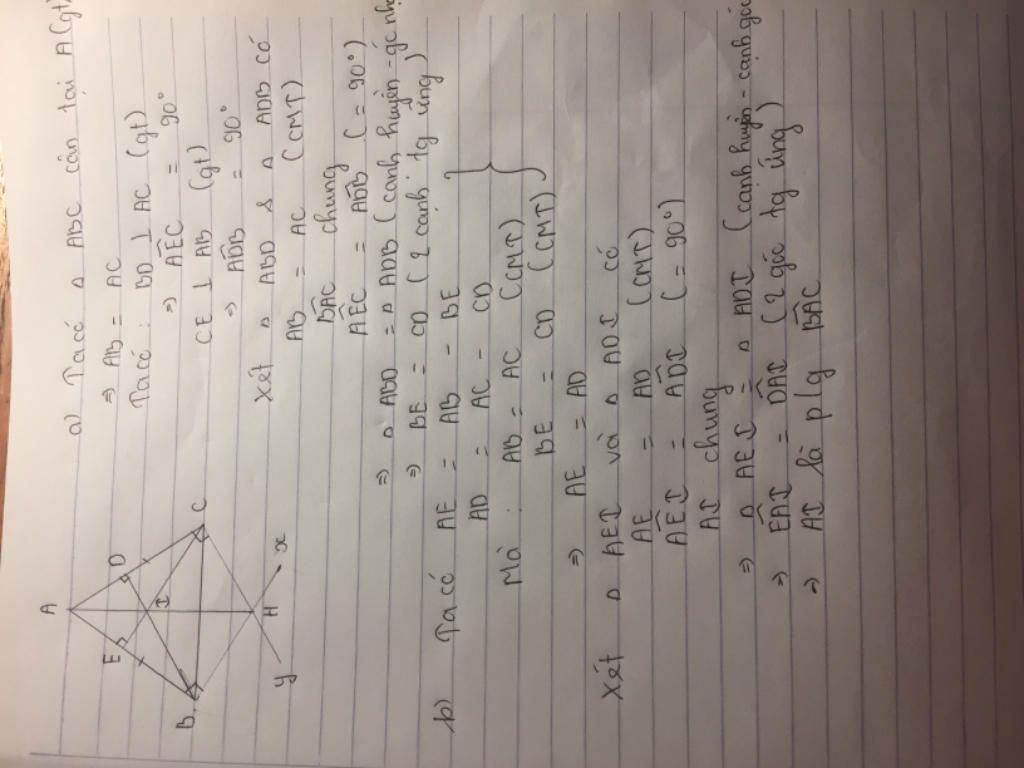 A
E
D
I
B
C
H
y
x
a) Ta có △ ABC cân tại A (gt)
⇒ AB = AC
Ta có : BD ⊥ AC (gt)
⇒ AEC = 90°
CE ⊥ AB (gt)
⇒ ADB = 90°
Xét △ ABD & △ ADB có
AB = AC (CMT)
BAC chung
AEC = ADB (= 90°)
⇒ △ ABD = △ ADB (cạnh huyền - góc
⇒ BE = CD (2 cạnh tg ứng)
b) Ta có AE = AB - BE
AD = AC - CD
Mà : AB = AC (CMT)
BE = CD (CMT)
⇒ AE = AD
Xét △ AEI và △ ADI có
AE = AD (CMT)
AEI = ADI (= 90°)
AI chung
⇒ △ AEI = △ ADI (cạnh huyền - cạnh góc
⇒ EAI = DAI (2 góc tg ứng)
⇒ AI là p/g BAC